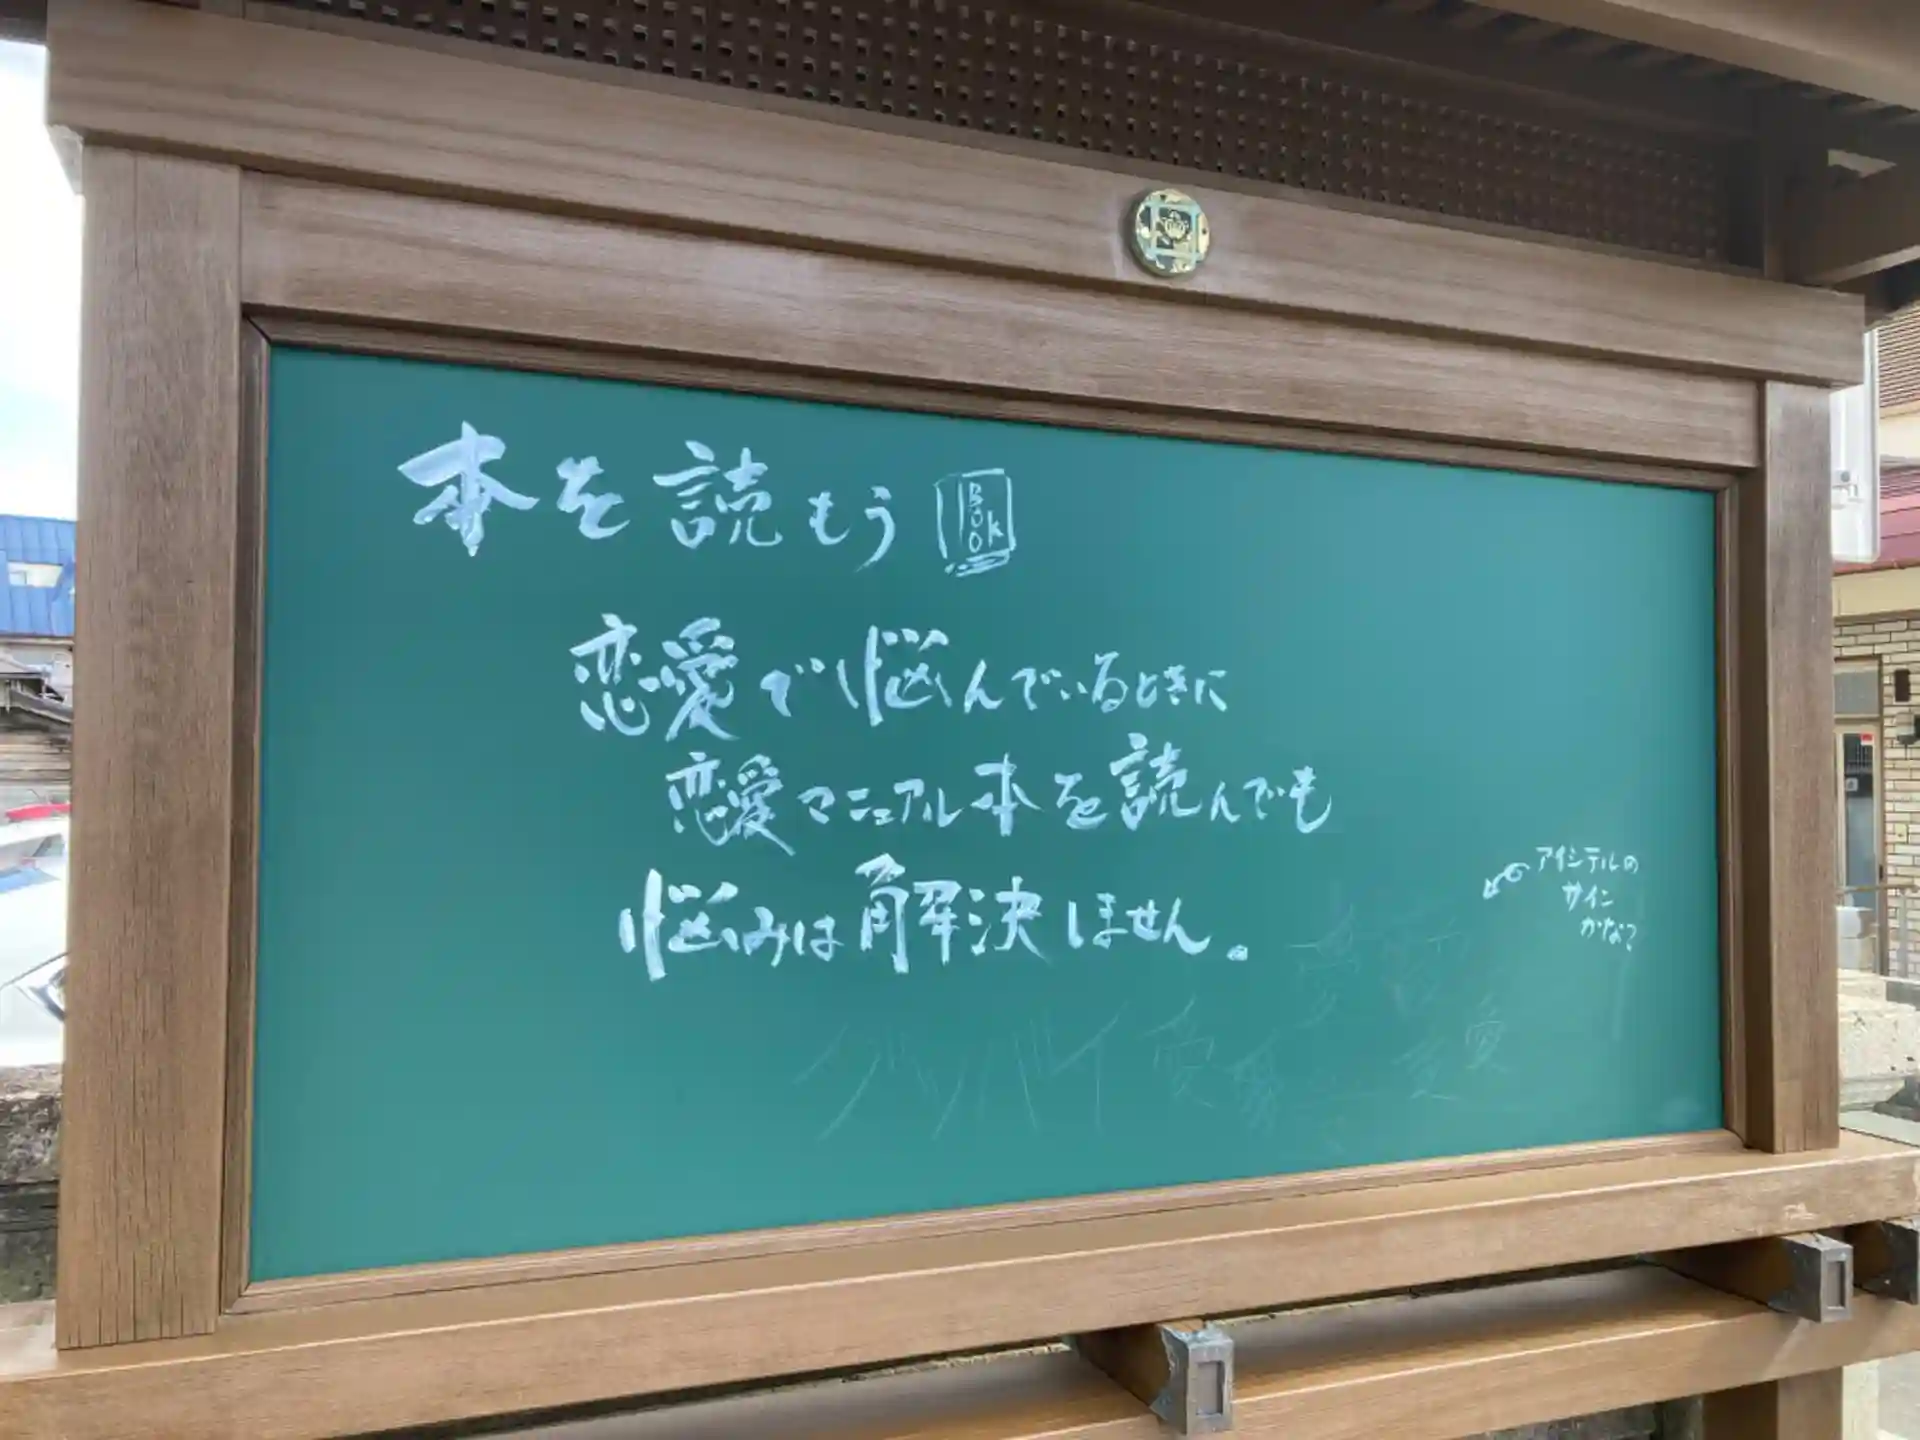 本を読もう
BOOK
恋愛で悩んでいるときに
恋愛マニュアル本を読んでも
悩みは解決しません。
アイシテルの
サイン
かな?
グッバイ 愛